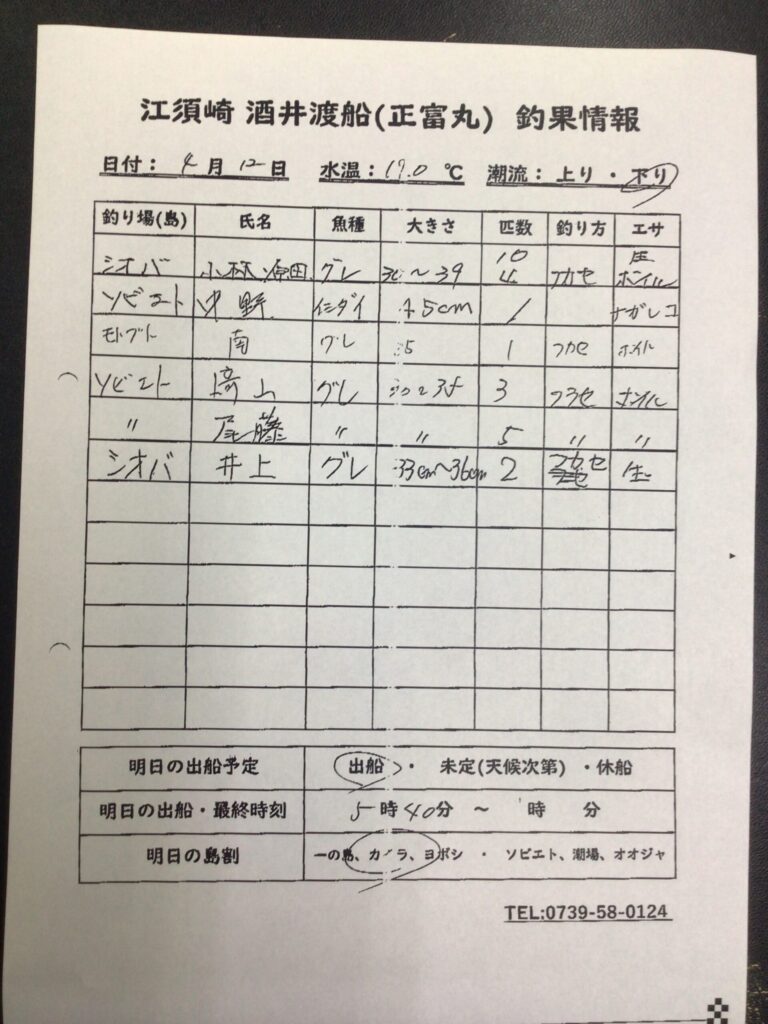 江須崎 酒井渡船(正富丸) 釣果情報
日付： 4月 12日 水温：17.0 ℃ 潮流：上り・下り
釣り場(島) 氏名 魚種 大きさ 匹数 釣り方 エサ
シオバ 小林 グレ 30〜39 10 4 フカセ 生 ボイル
ソビエト 中野 イシダイ 45cm 1 ナガレコ
南 グレ 35 1 フカセ
ソビエト グレ 3 フカセ ボイル
〃 尾藤 〃 〃 5 〃 〃
シオバ 井上 グレ 33cm〜36cm 2 フカセ 生
明日の出船予定 出船・ 未定(天候次第) ・休船
明日の出船・最終時刻 5時40分 〜 時 分
明日の島割 一の島、カヅラ、ヨボシ ・ ソビエト、潮場、オオジャ
TEL:0739-58-0124